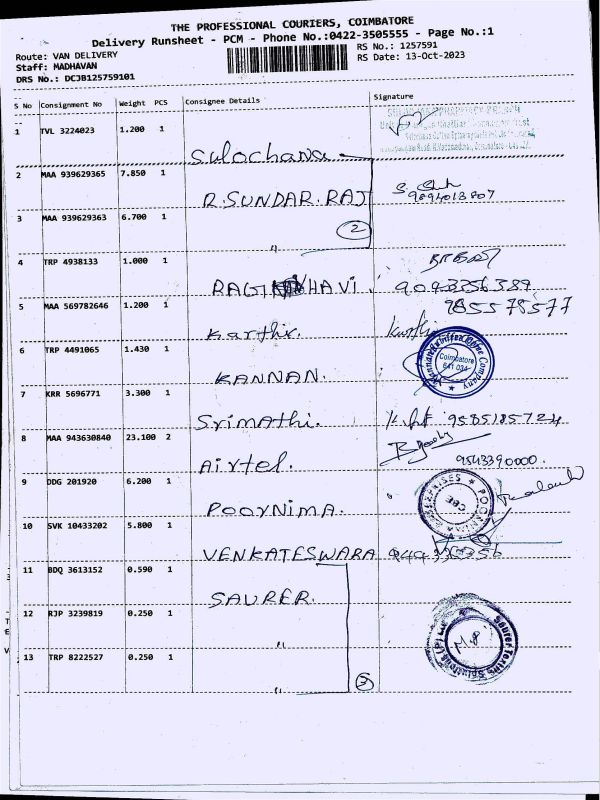 THE PROFESSIONAL COURIERS, COIMBATORE
Delivery Runsheet - PCM - Phone No.:0422-3505555 - Page No.:1
Route: VAN DELIVERY
RS No.: 1257591
Staff: MADHAVAN
RS Date: 13-Oct-2023
DRS No.: DCJB125759101
S No Consignment No Weight PCS Consignee Details Signature
1 TVL 3224023 1.200 1
Sulochana
2 MAA 939629365 7.850 1
R.SUNDAR.RAJ
3 MAA 939629363 6.700 1
2
"
4 TRP 4938133 1.000 1
9043356389
5 MAA 569782646 1.200 1 985578577
Karthik.
6 TRP 4491065 1.430 1 Coimbatore
641 034
KANNAN.
7 KRR 5696771 3.300 1
Srimathi. 9585185724
8 MAA 943630840 23.100 2
Airtel. 9543390000.
9 DDG 201920 6.200 1
CBE
POORNIMA.
10 SVK 10433202 5.800 1
VENKATESWARA
11 BDQ 3613152 0.590 1
SAURER.
12 RJP 3239819 0.250 1
"
13 TRP 8222527 0.250 1
"